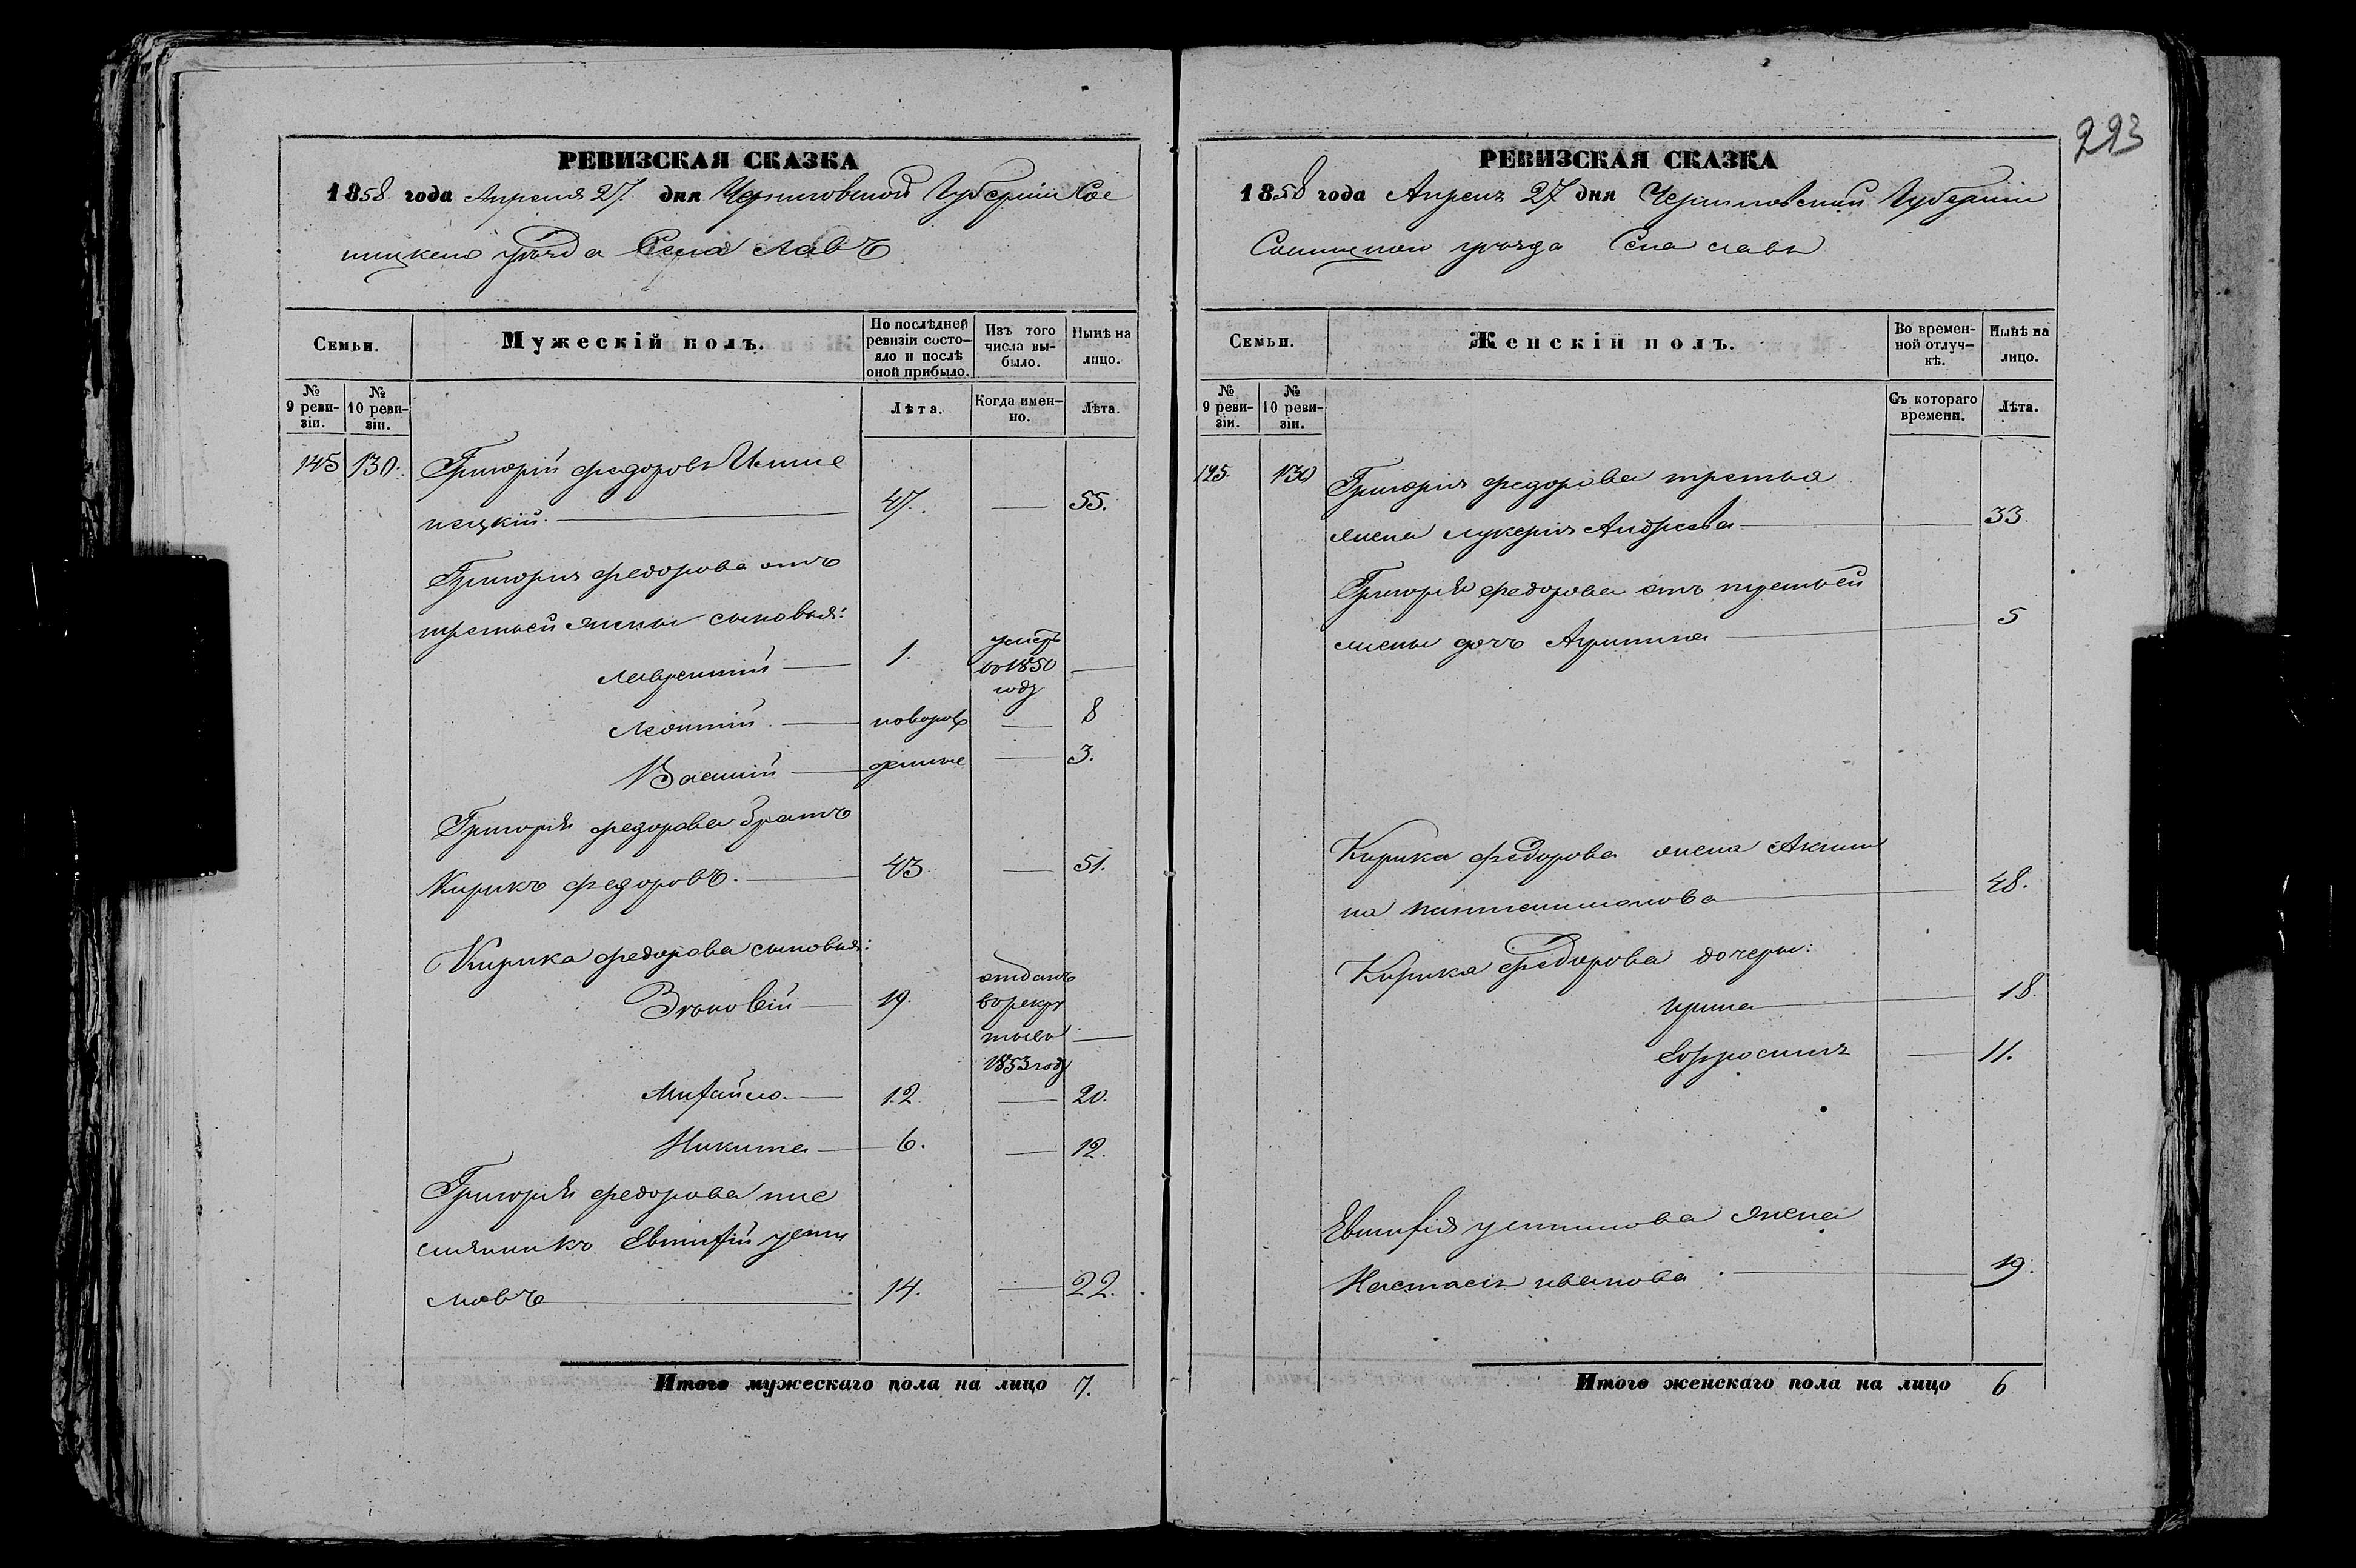 293
РЕВИЗСКАЯ СКАЗКА
1858 года Апреля 27. дня Черниговской Губернии Сос
ницкого уезда Села Лавъ
Семьи.
Мужескій полъ.
По послѣдней ревизіи состояло и послѣ оной прибыло.
Изъ того числа выбыло.
Нынѣ на лицо.
№ 9 ревизіи.
№ 10 ревизіи.
Лѣта.
Когда именно.
Лѣта.
145 130. Григорій федоровъ
47. — 55.
Григорія федорова отъ
третьей жены сыновья:
Лаврентій — 1. умеръ въ 1850 году —
Леонтій. — новорож — 8
Василій — денные — 3.
Григорія федорова братъ
Кирикъ федоровъ. — 43 — 51.
Кирика федорова сыновья:
Зѣновій — 19. отданъ въ рекру ты въ 1853 году —
Михайло. — 12. — 20.
Никита — 6. — 12.
Григорія федорова пле
мянникъ Евтифій усти
мовъ — 14. — 22.
Итого мужескаго пола на лицо 7.
РЕВИЗСКАЯ СКАЗКА
1858 года Апреля 27 дня Черниговской Губернии
Сосницкого уезда Села Лавъ
Семьи.
Женскій полъ.
Во временной отлучкѣ.
Нынѣ на лицо.
№ 9 ревизіи.
№ 10 ревизіи.
Съ котораго времени.
Лѣта.
130 Григорія федорова третья
жена Лукерія Андреева — 33
Григорія федорова отъ третьей
жены дочь — 5
Кирика федорова жена Акили
на пантелимонова — 48.
Кирика федорова дочери:
Ирина — 18.
Ефросинія — 11.
Евтифія устимова жена
Настасія иванова. — 19.
Итого женскаго пола на лицо 6